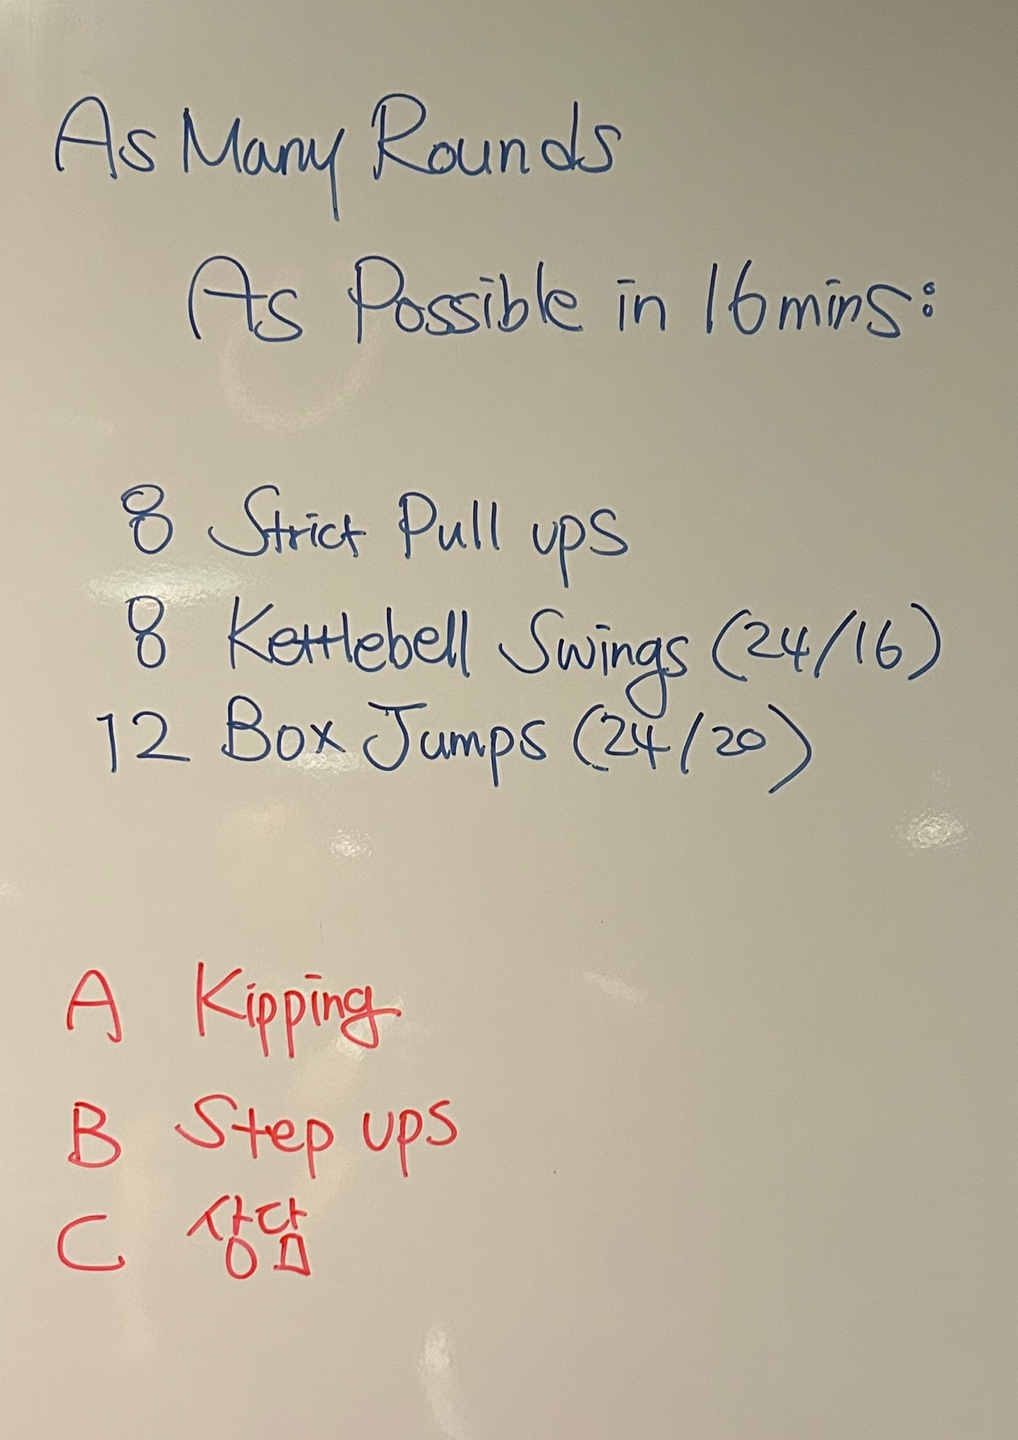 As Many Rounds
As Possible in 16mins:
8 Strict Pull ups
8 Kettlebell Swings (24/16)
12 Box Jumps (24/20)
A Kipping
B Step ups
C 상담